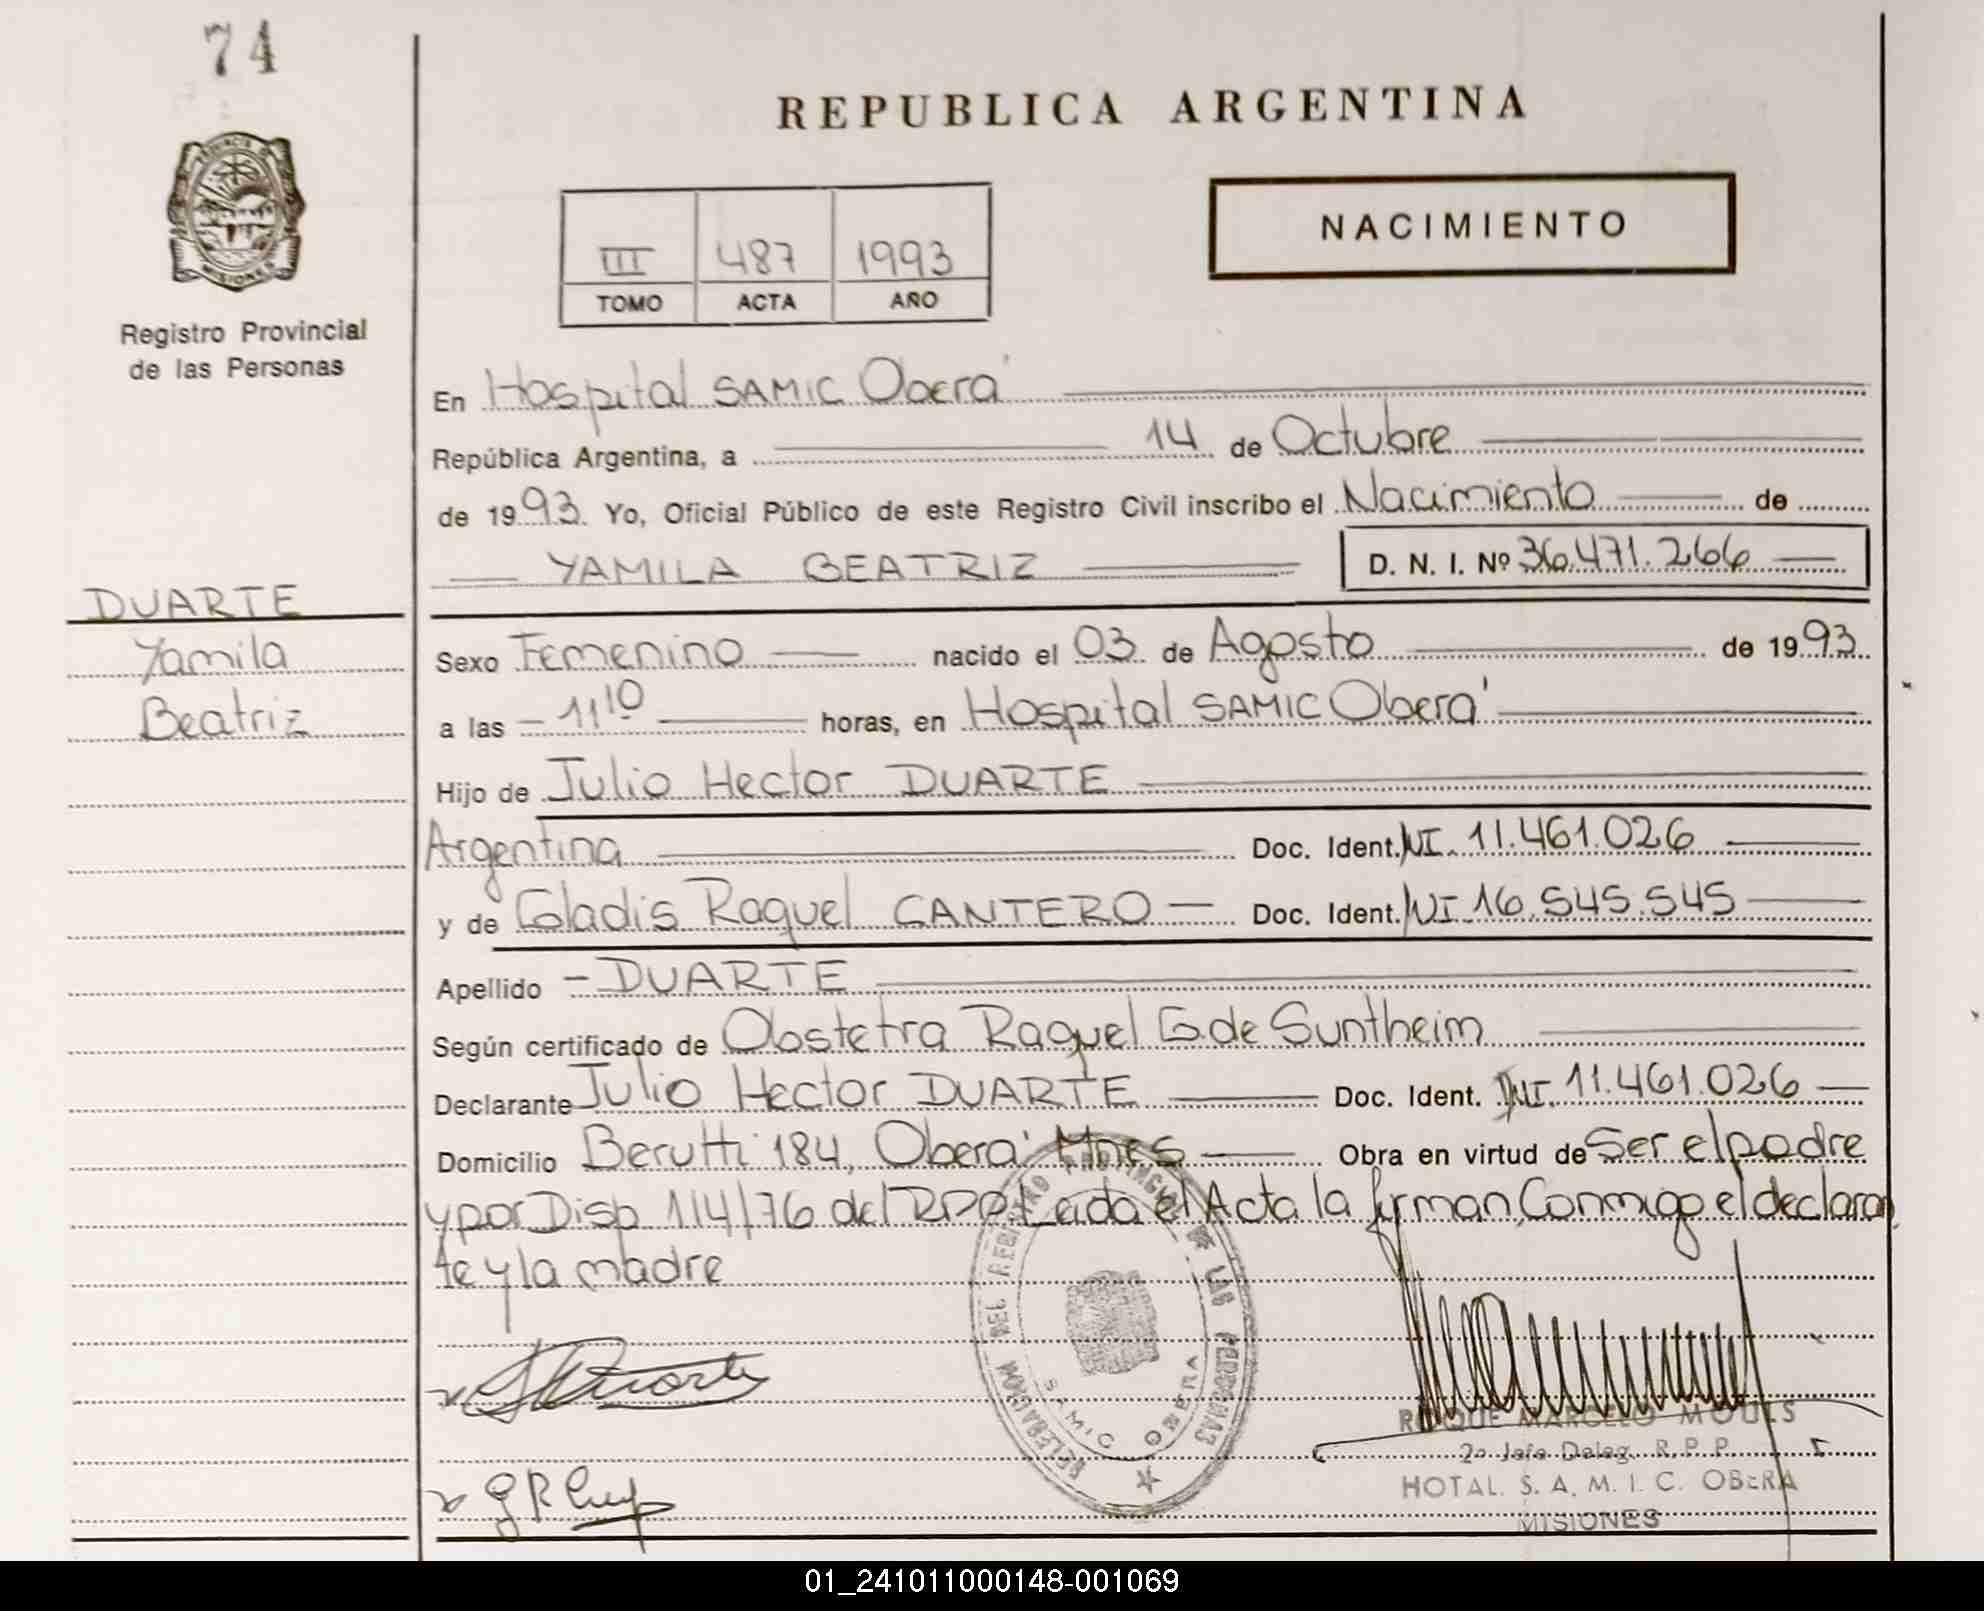 74
REPUBLICA ARGENTINA
NACIMIENTO
III 487 1993
TOMO ACTA AÑO
MISIONES
Registro Provincial
de las Personas
En Hospital SAMIC Oberá
República Argentina, a 14 de Octubre
de 1993. Yo, Oficial Público de este Registro Civil inscribo el Nacimiento de
YAMILA BEATRIZ D. N. I. Nº 36.471.266
DUARTE
Yamila
Beatriz
Sexo Femenino nacido el 03 de Agosto de 1993
a las 11 10 horas, en Hospital SAMIC Oberá
Hijo de Julio Hector DUARTE
Argentina Doc. Ident. DNI. 11.461.026
y de Gladis Raquel CANTERO Doc. Ident. DNI 16.545.545
Apellido DUARTE
Según certificado de Obstetra Raquel G. de Suntheim
Declarante Julio Hector DUARTE Doc. Ident. DNI. 11.461.026
Domicilio Berutti 184, Oberá Mnes Obra en virtud de Ser el padre
y por Disp 114/76 del RPP. Leida el Acta la firman, Conmigo el declaran
te y la madre
DELEGACION DEL REGISTRO PROVINCIAL DE LAS PERSONAS
SAMIC OBERA
ROQUE MARCELO
2º Jefe Deleg. R.P.P.
HOTAL. S. A. M. I. C. OBERA
MISIONES
01_241011000148-001069